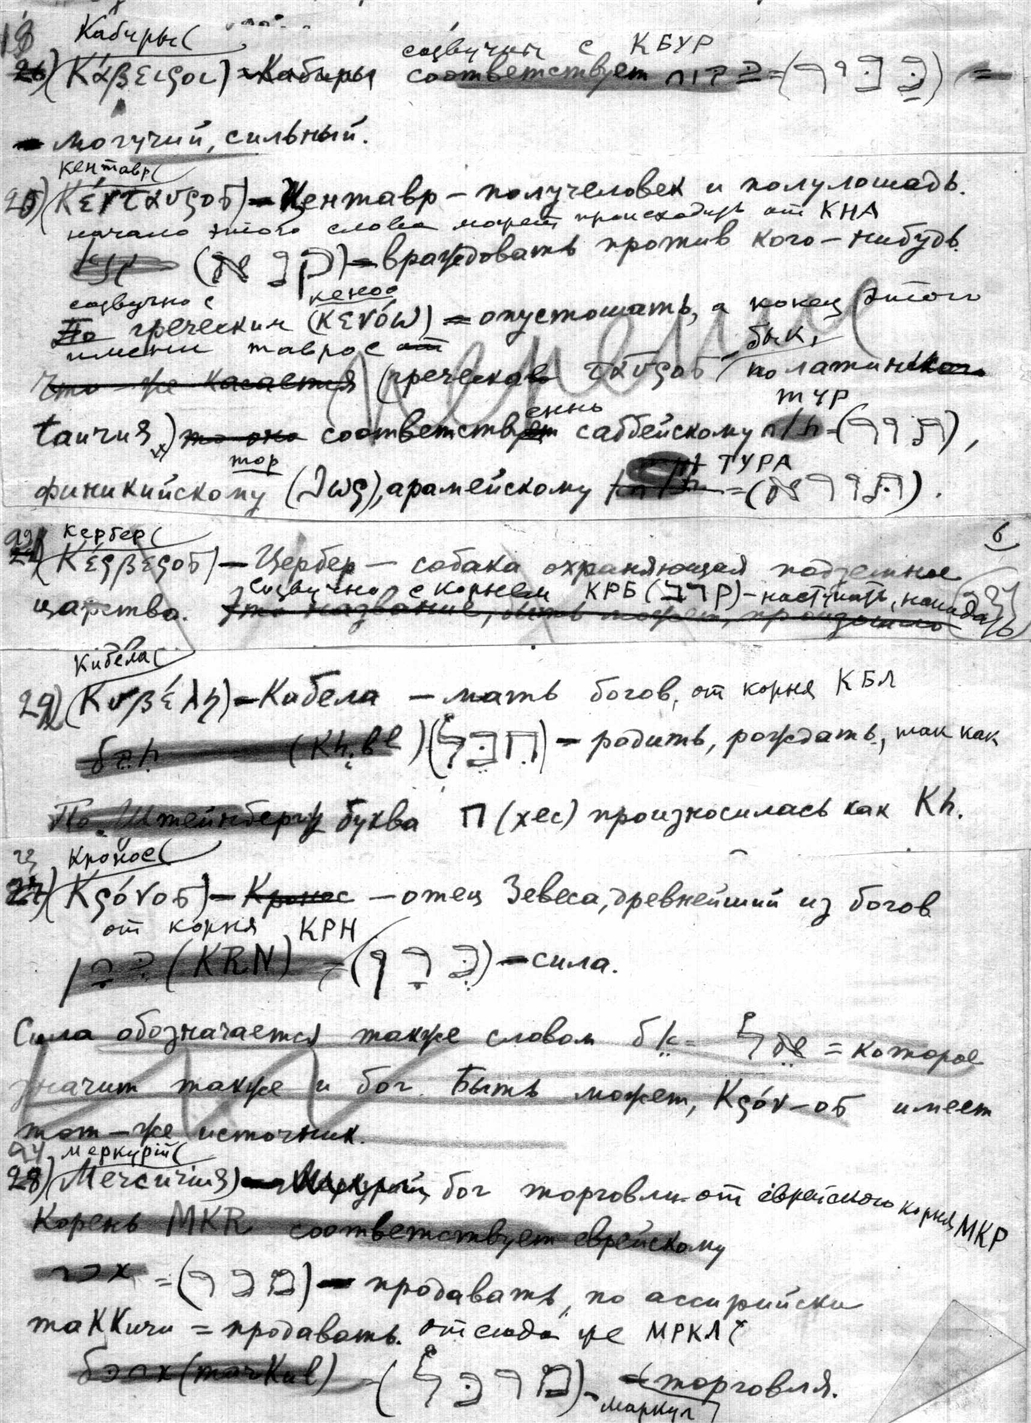 Кабиры
созвучны с КБУР
(Κάβειροι) = Кабиры соответствует = (כַּבִּיר) =
= могучий, сильный.
Кентавр
25) (Κένταυρος) — Кентавр — получеловек и полулошадь.
начало этого слова может происходить от КНА
(קנא) — враждовать против кого-нибудь.
созвучно с кеноо
По греческим (κενόω) = опустошать, а конец этого
имени таврос от бык,
Что же касается (греческое ταυρος по латински
енны тур
taurus) то оно соответствует саббейскому = (תור),
тор ТУРА
финикийскому (θωρ), арамейскому = (תורא).
Кербер 6
(Κέρβερος) — Цербер — собака охраняющая подземное
созвучно с корнем КРБ (קרב) — наступать, нападать
царство. Это название, быть может, произошло
Кибела
29) (Κυβέλη) — Кибела — мать богов, от корня КБЛ
(Kh.bl) (חבל) — родить, рождать, так как
По Штейнбергу буква П (хес) произносилась как Kh.
Кронос
27) (Κρόνος) — Кронос — отец Зевеса, древнейший из богов
от корня КРН
(KRN) = (קרן) — сила.
Сила обозначается также словом = אל = которое
значит также и бог. Быть может, Κρόν-ος имеет
тот-же источник.
Меркурий
28) (Mercurius) — Меркурий, бог торговли от еврейского корня МКР
Корень MKR соответствует еврейскому
= (מכר) — продавать, по ассирийски
таККиги = продавать. отсюда же МРКЛ
(מרכל) — торговля.
маркул